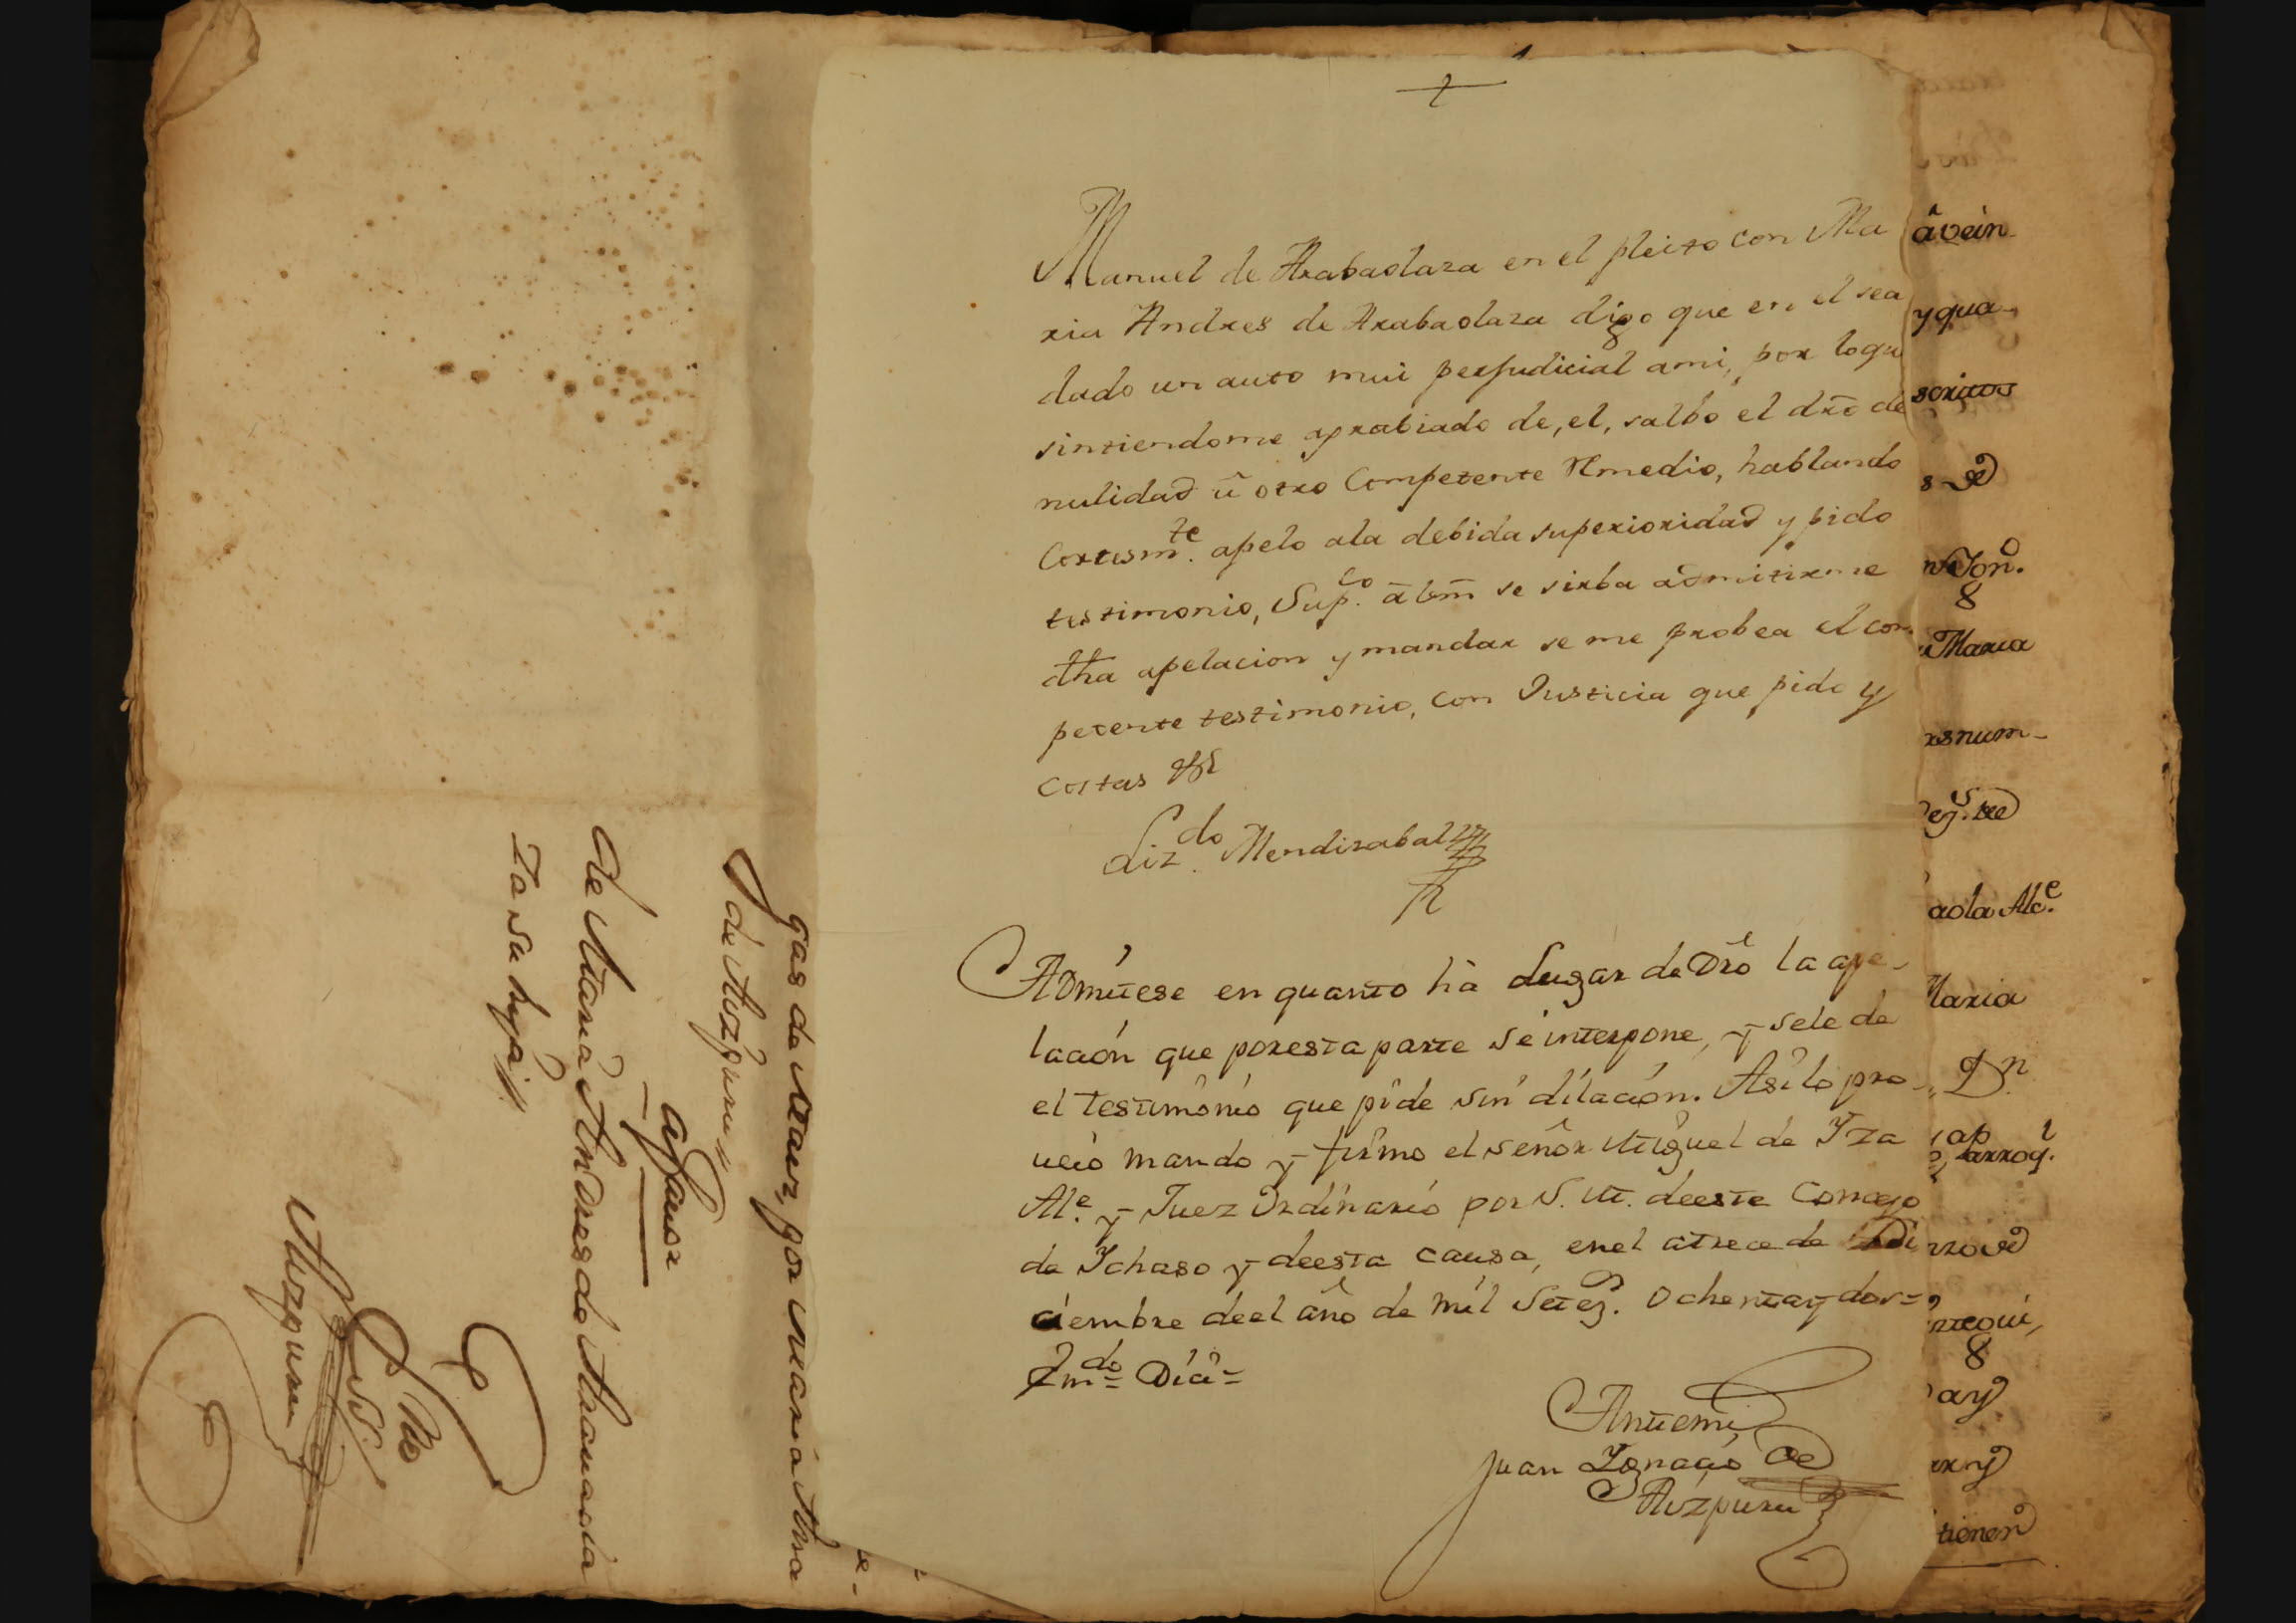 Manuel de Arabaolaza en el pleito con Ma
ria Andres de Arabaolaza digo que en el sea
dado un auto mui perjudicial ami, por loqu
sintiendome agrabiado de, el, salbo el dr̄o de
nulidad ū otro Competente Remedio, hablando
Cortesmte. apelo ala debida superioridad y pido
testimonio, Supco. ā Vm̄ se sirba admitirme
dha apelacion y mandar se me probea el com
petente testimonio, con Justicia que pido y
costas &c
Lizdo. Mendizabal
Admitese en quanto hà Lugar de Dro̅ la ape-
lacion que poresta parte se interpone, y sele de
el testimonio que pide sin dilacion. Asilo pro-
ueió mando y firmo el señor Miguel de Yza
Ale. y Juez Ordinario por S. M. deeste Concejo
de Ychaso y deesta causa, enel atrece de Di
ciembre deel año de mil Seteզ. ochentaydos=
Antemi
Juan Ignacio de
Aizpuru
âvein-
yqua-
scritos
Maria
num-
aola Alce.
Maria
Dn.
tienen
gas de Maiz, por Maria Ara
de Aizpuru
afauor
de Maria Andres de Arauaola
za su hija
Aizpuru